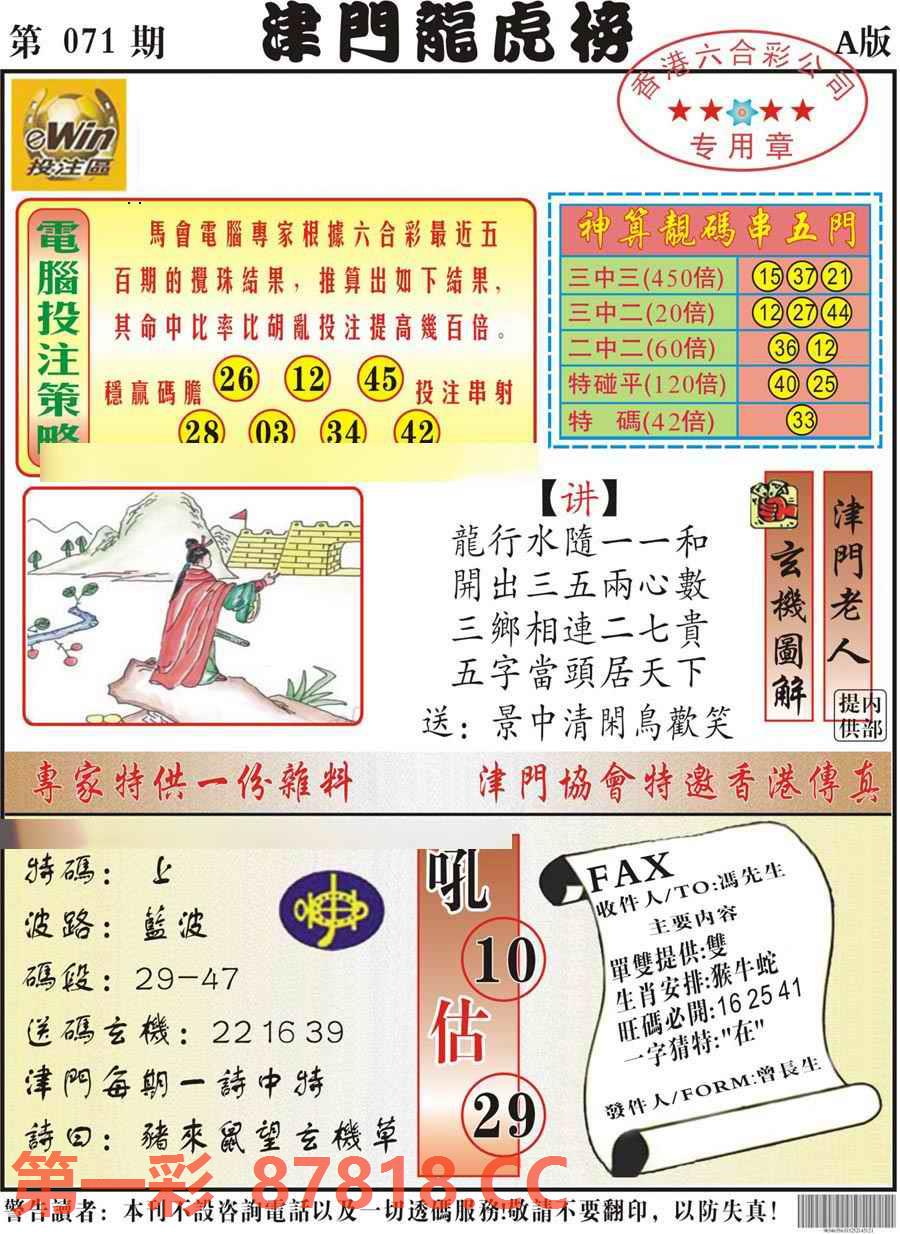 第 071 期
津門龍虎榜
A版
香港六合彩公司
专用章
eWin
投注區
電腦投注策略
馬會電腦專家根據六合彩最近五
百期的攪珠結果，推算出如下結果，
其命中比率比胡亂投注提高幾百倍。
穩贏碼膽 26 12 45 投注串射
28 03 34 42
神算靚碼串五門
三中三(450倍) 15 37 21
三中二(20倍) 12 27 44
二中二(60倍) 36 12
特碰平(120倍) 40 25
特 碼(42倍) 33
【讲】
龍行水隨一一和
開出三五兩心數
三鄉相連二七貴
五字當頭居天下
送：景中清閑鳥歡笑
玄機圖解
津門老人
内部提供
專家特供一份雜料
津門協會特邀香港傳真
波路：藍波
碼段：29-47
送碼玄機：22 16 39
津門每期一詩中特
詩曰：豬來鼠望玄機草
吼
10
估
29
FAX
收件人/TO:馮先生
主要内容
單雙提供:雙
生肖安排:猴牛蛇
旺碼必開:16 25 41
一字猜特:"在"
發件人/FORM:曾長生
第一彩 87818.CC
警告讀者：本刊不設咨詢電話以及一切透碼服務!敬請不要翻印，以防失真!